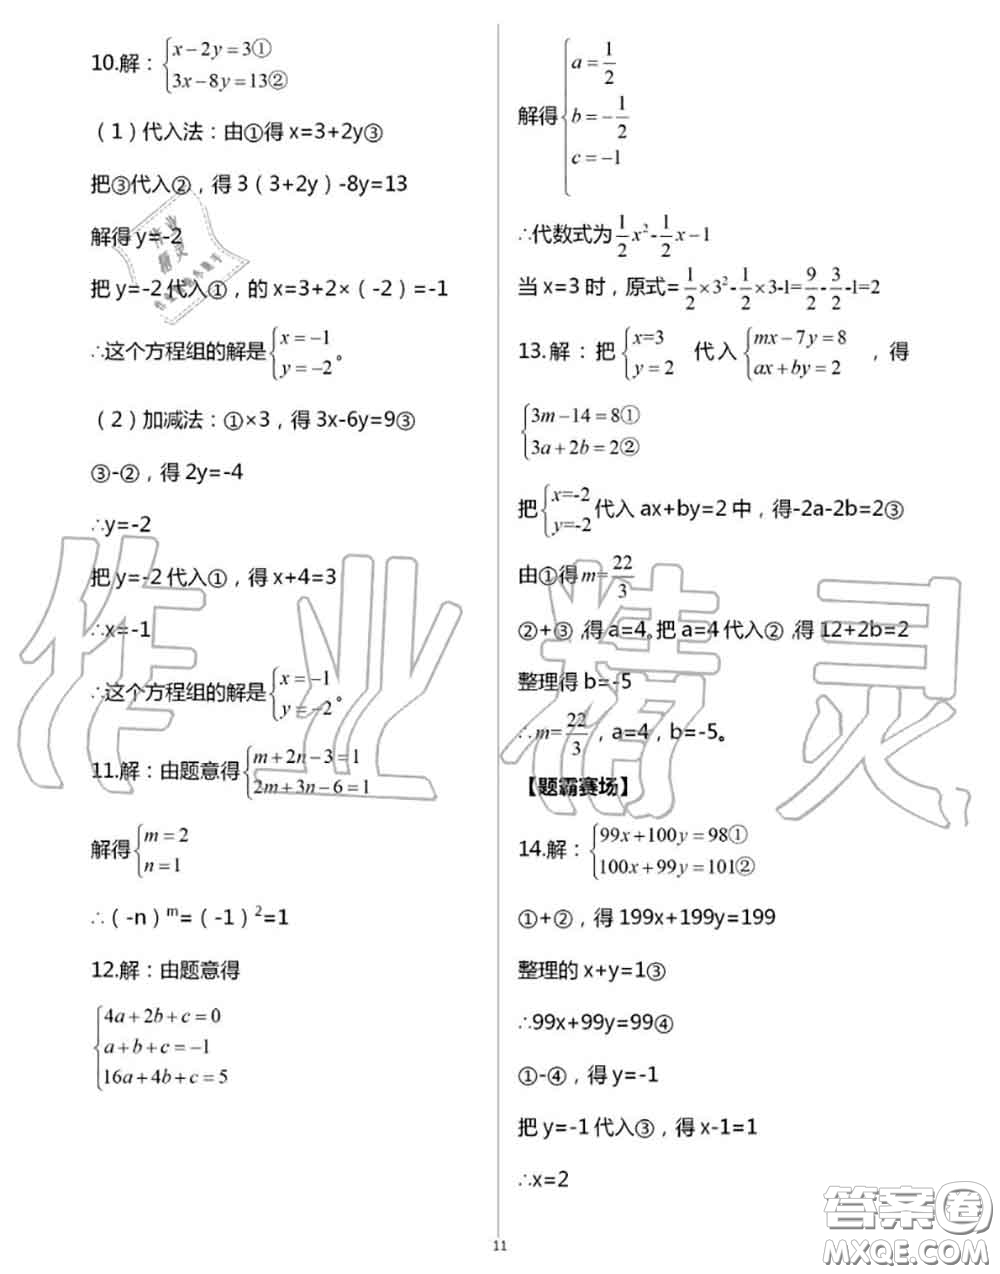 10.解：{x－2y＝3①
3x－8y＝13②
（1）代入法：由①得 x=3+2y③
把③代入②，得 3（3+2y）-8y=13
解得 y=-2
把 y=-2 代入①，的 x=3+2×（-2）=-1
∴这个方程组的解是{x＝－1
y＝－2。
（2）加减法：①×3，得 3x-6y=9③
③-②，得 2y=-4
∴y=-2
把 y=-2 代入①，得 x+4=3
∴x=-1
∴这个方程组的解是{x＝－1
y＝－2。
11.解：由题意得{m＋2n－3＝1
2m＋3n－6＝1
解得{m＝2
n＝1
∴（-n）^m=（-1）^2=1
12.解：由题意得
{4a＋2b＋c＝0
a＋b＋c＝－1
16a＋4b＋c＝5
解得{a＝1/2
b＝－1/2
c＝－1
∴代数式为 1/2 x²-1/2 x－1
当 x=3 时，原式=1/2×3²-1/2×3-1=9/2-3/2-1=2
13.解：把{x=3
y＝2 代入{mx－7y＝8
ax＋by＝2 ，得
{3m－14＝8①
3a＋2b＝2②
把{x=-2
y=-2 代入 ax+by=2 中，得-2a-2b=2③
由①得 m=22/3
②+③，得 a=4。把 a=4 代入②，得 12+2b=2
整理得 b=-5
∴m=22/3，a=4，b=-5。
【题霸赛场】
14.解：{99x＋100y＝98①
100x＋99y＝101②
①+②，得 199x+199y=199
整理的 x+y=1③
∴99x+99y=99④
①-④，得 y=-1
把 y=-1 代入③，得 x-1=1
∴x=2
11
作业精灵
答案圈
MXQE.COM